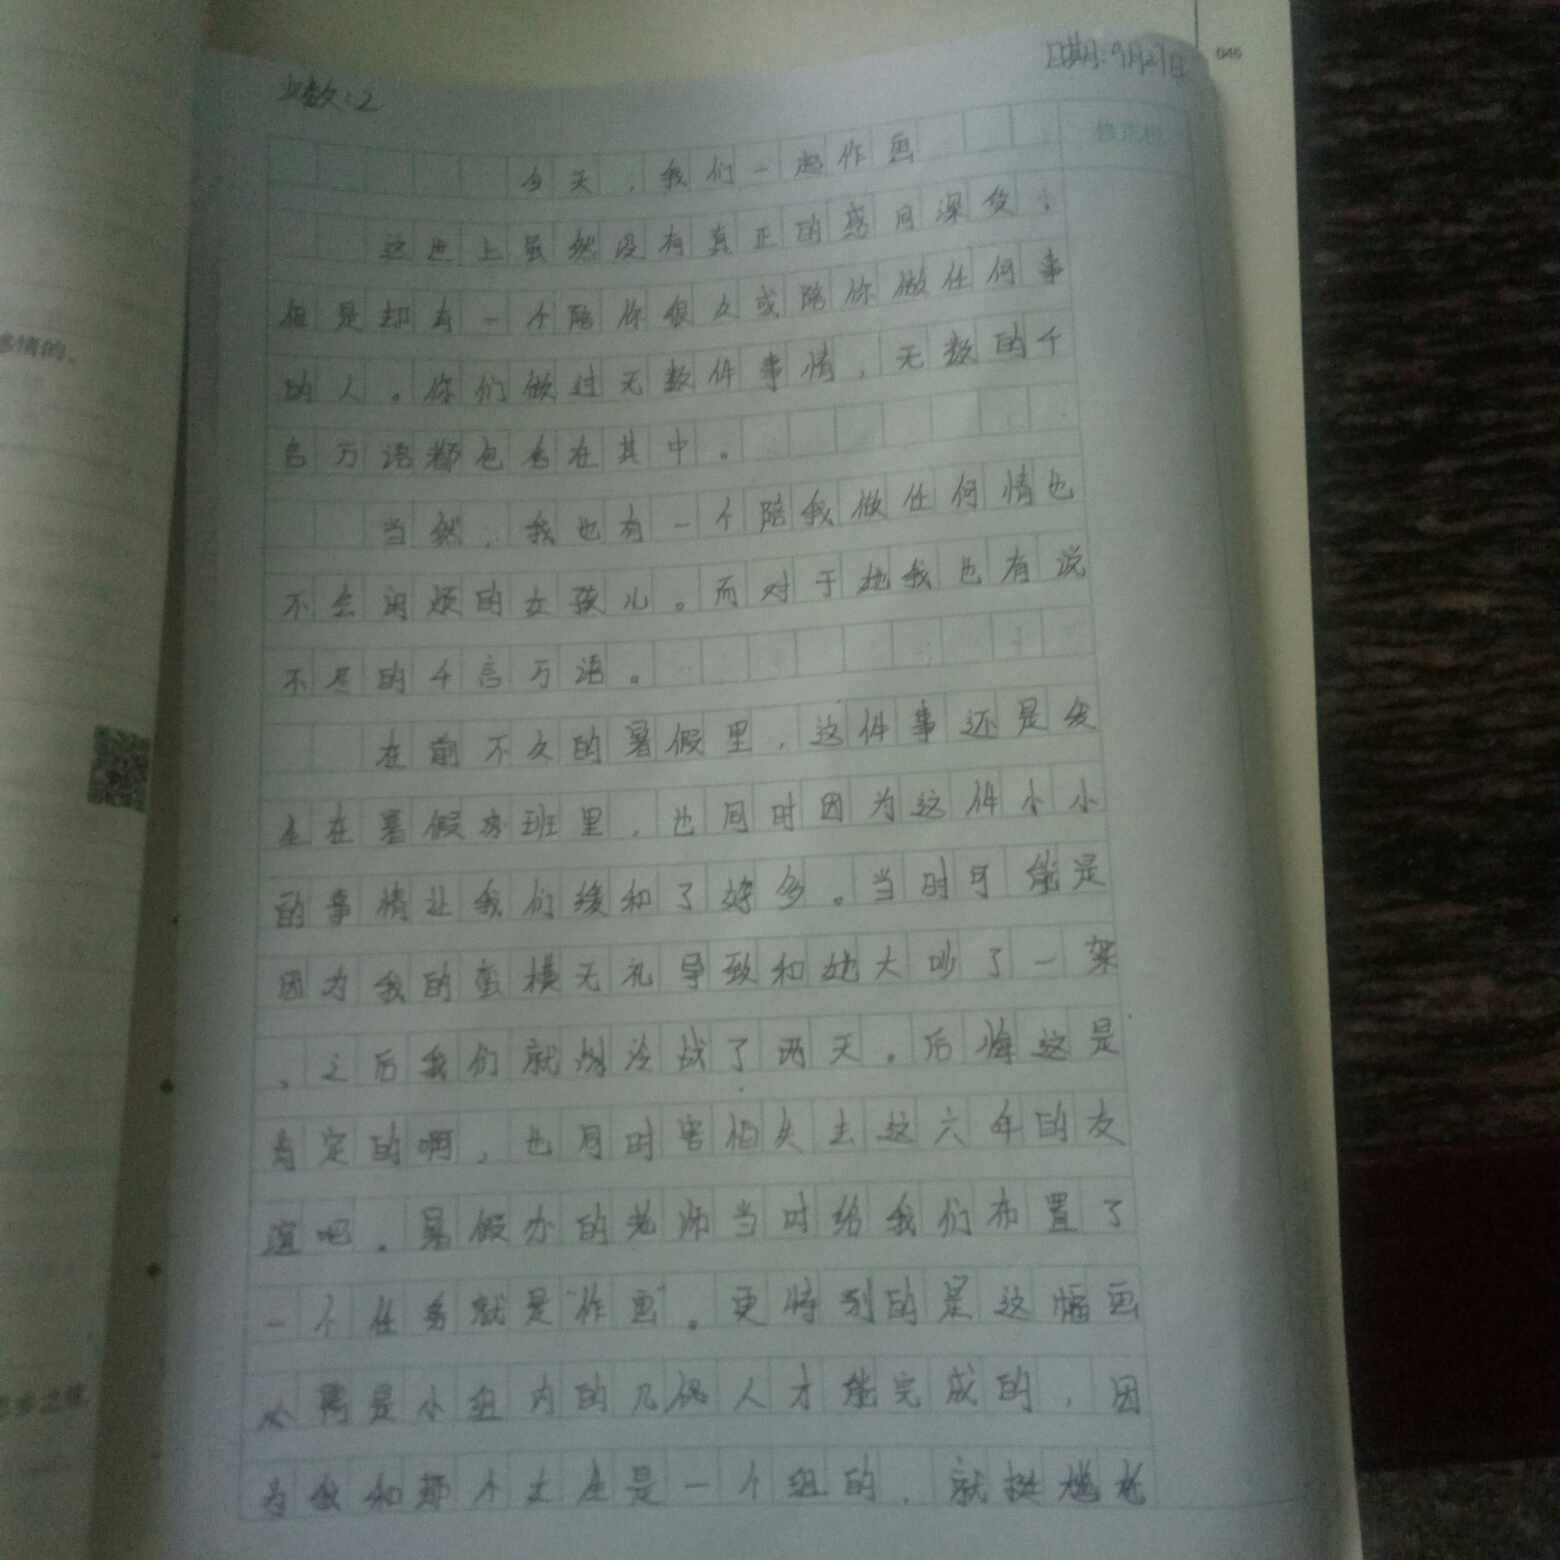 次数：2
日期：9月27日
046
修改栏
今天，我们一起作画
这世上虽然没有真正的感同深受，
但是却有一个陪你很久或陪你做任何事
的人。你们做过无数件事情，无数的千
言万语都包含在其中。
当然，我也有一个陪我做任何情也
不会闲烦的女孩儿。而对于她我也有说
不尽的千言万语。
在前不久的暑假里，这件事还是发
生在暑假办班里，也同时因为这件小小
的事情让我们缓和了好多。当时可能是
因为我的蛮横无礼导致和她大吵了一架
，之后我们就冷战了两天。后悔这是
肯定的啊，也同时害怕失去这六年的友
谊吧。暑假办的老师当时给我们布置了
一个任务就是“作画”。更特别的是这幅画
必需是小组内的几俩人才能完成的，因
为我和那个女生是一个组的，就挺尴尬
多情的。